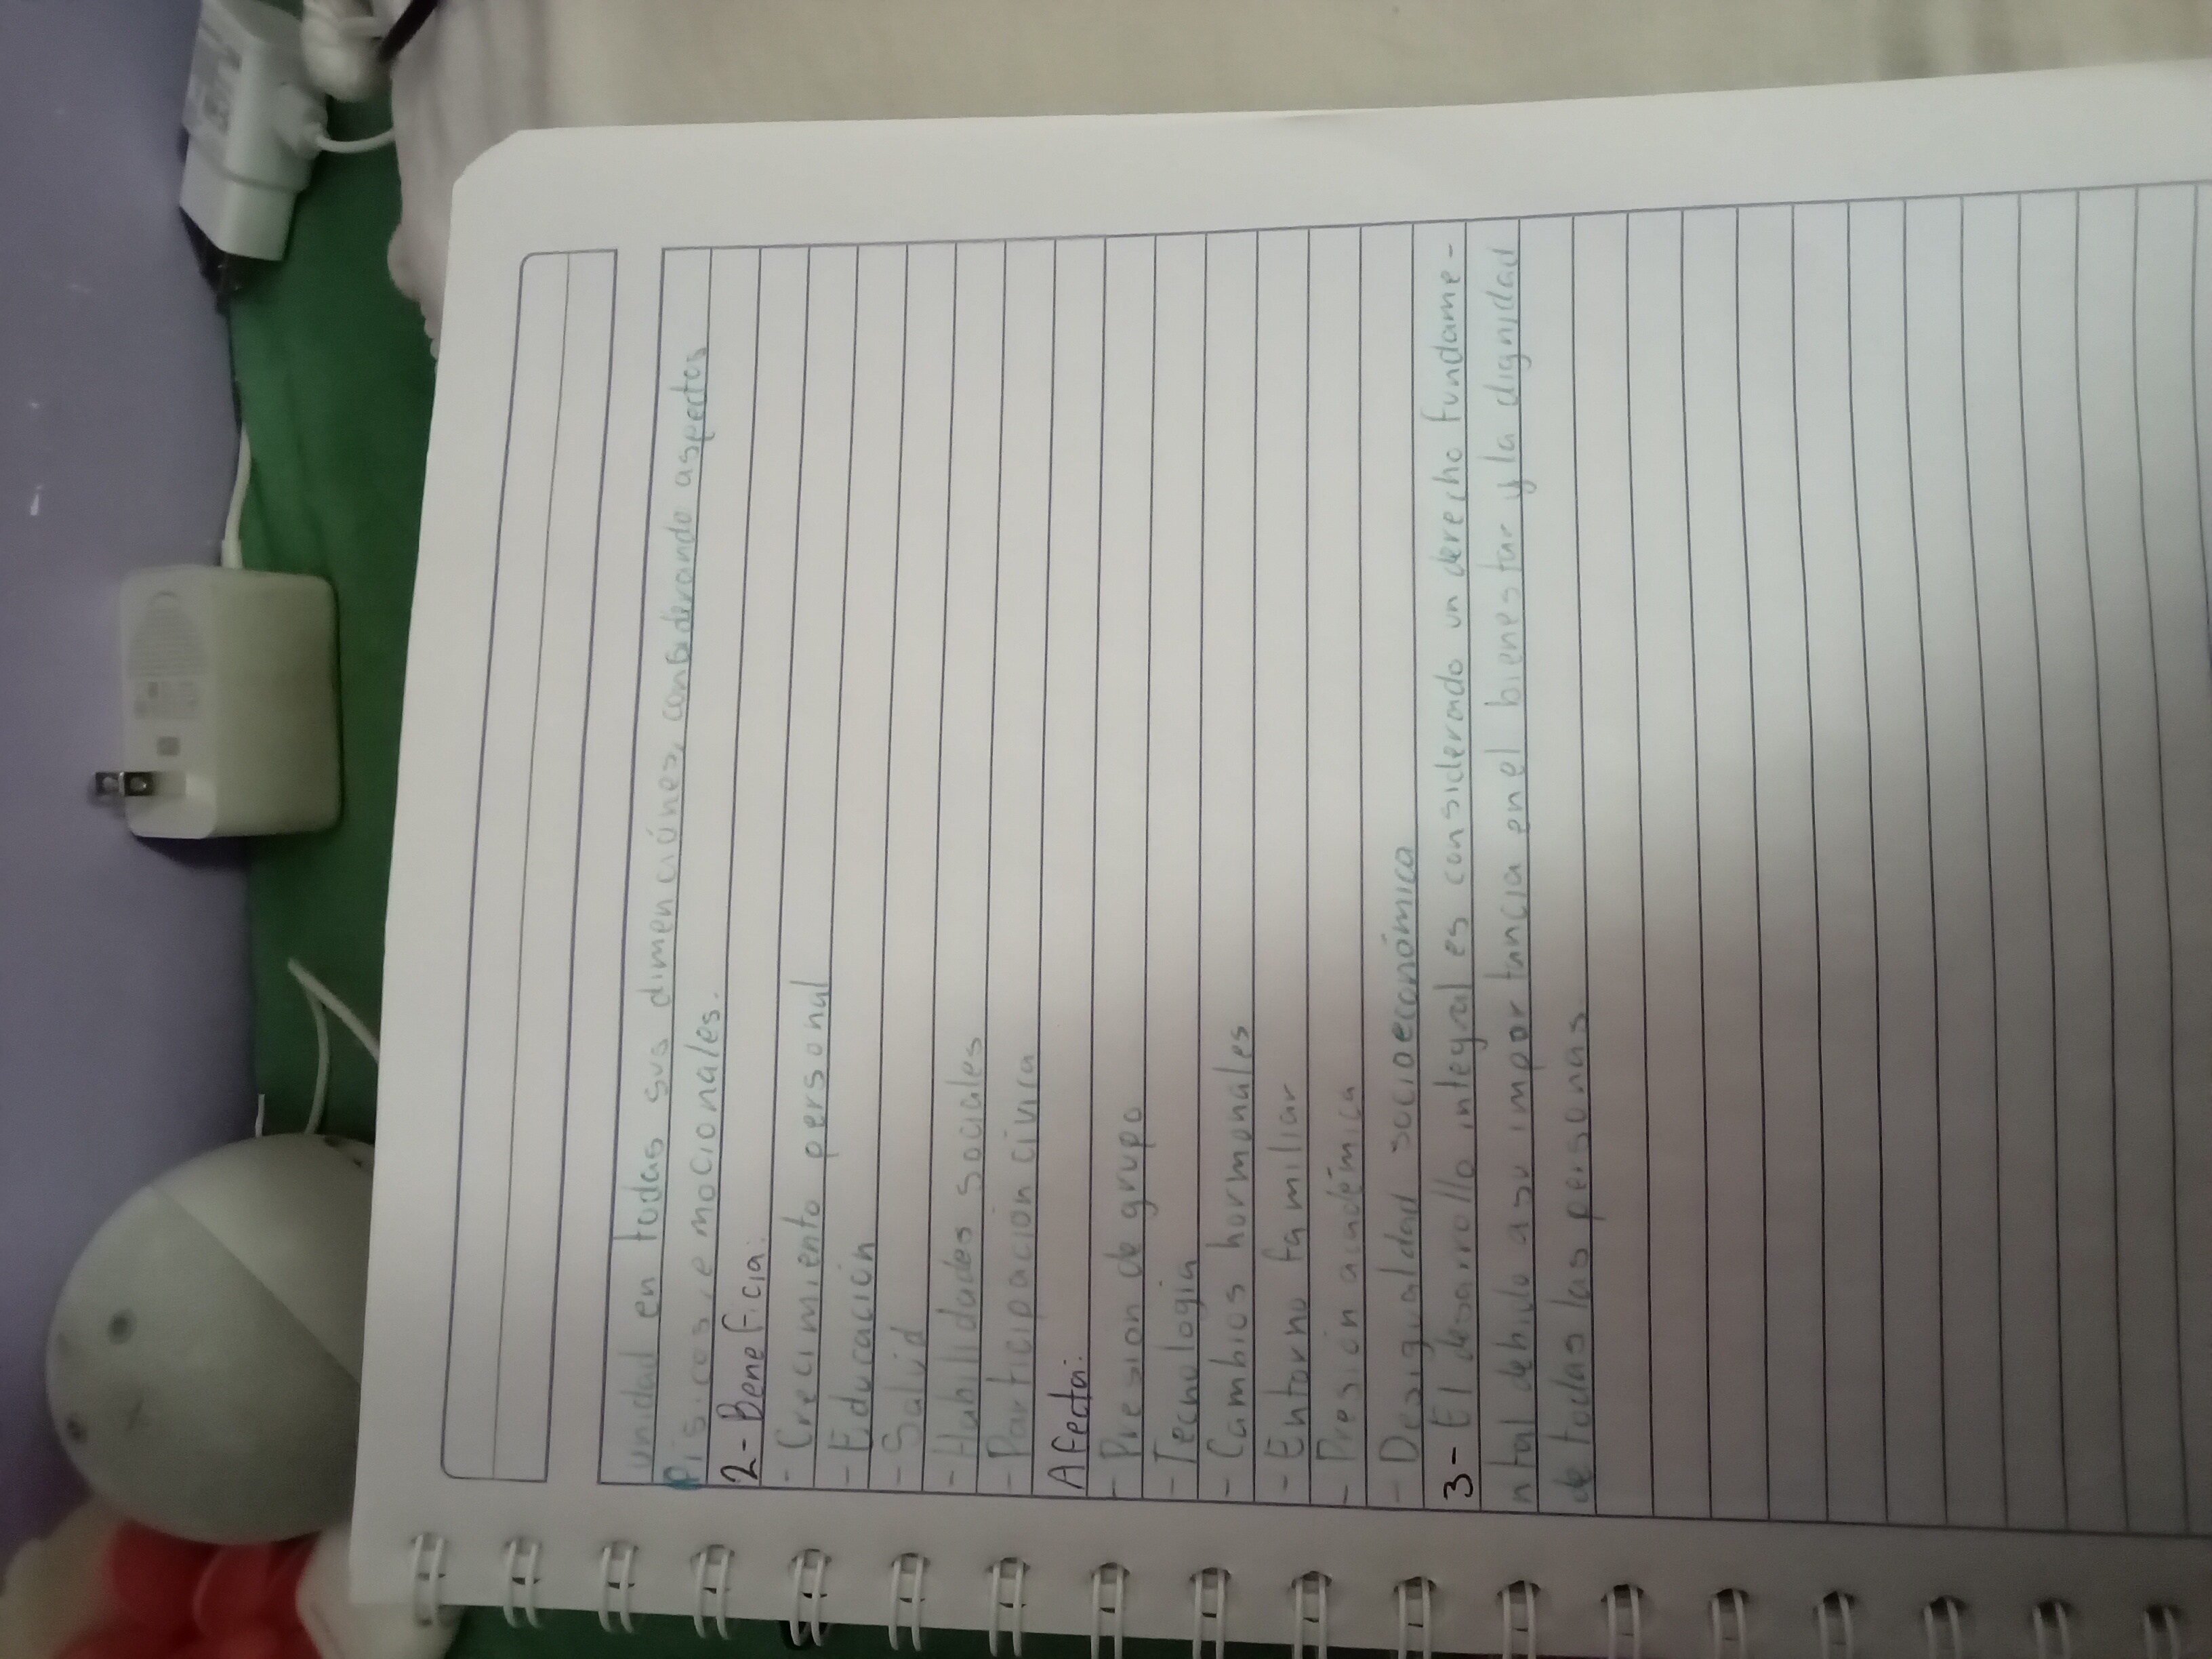 unidad en todas sus dimenciónes, considerando aspectos
písicos, e mocionales.
2- Beneficia:
- Crecimiento personal
- Educación
- Salud
- Habilidades sociales
- Participación civica
Afecta:
- Presion de grupo
- Tecnologia
- Cambios hormonales
- Entorno familiar
- Presión académica
- Desigualdad socioeconómica
3- El desarrollo integral es considerado un derecho fundame-
ntal debido a su importancia en el bienestar y la dignidad
de todas las personas.